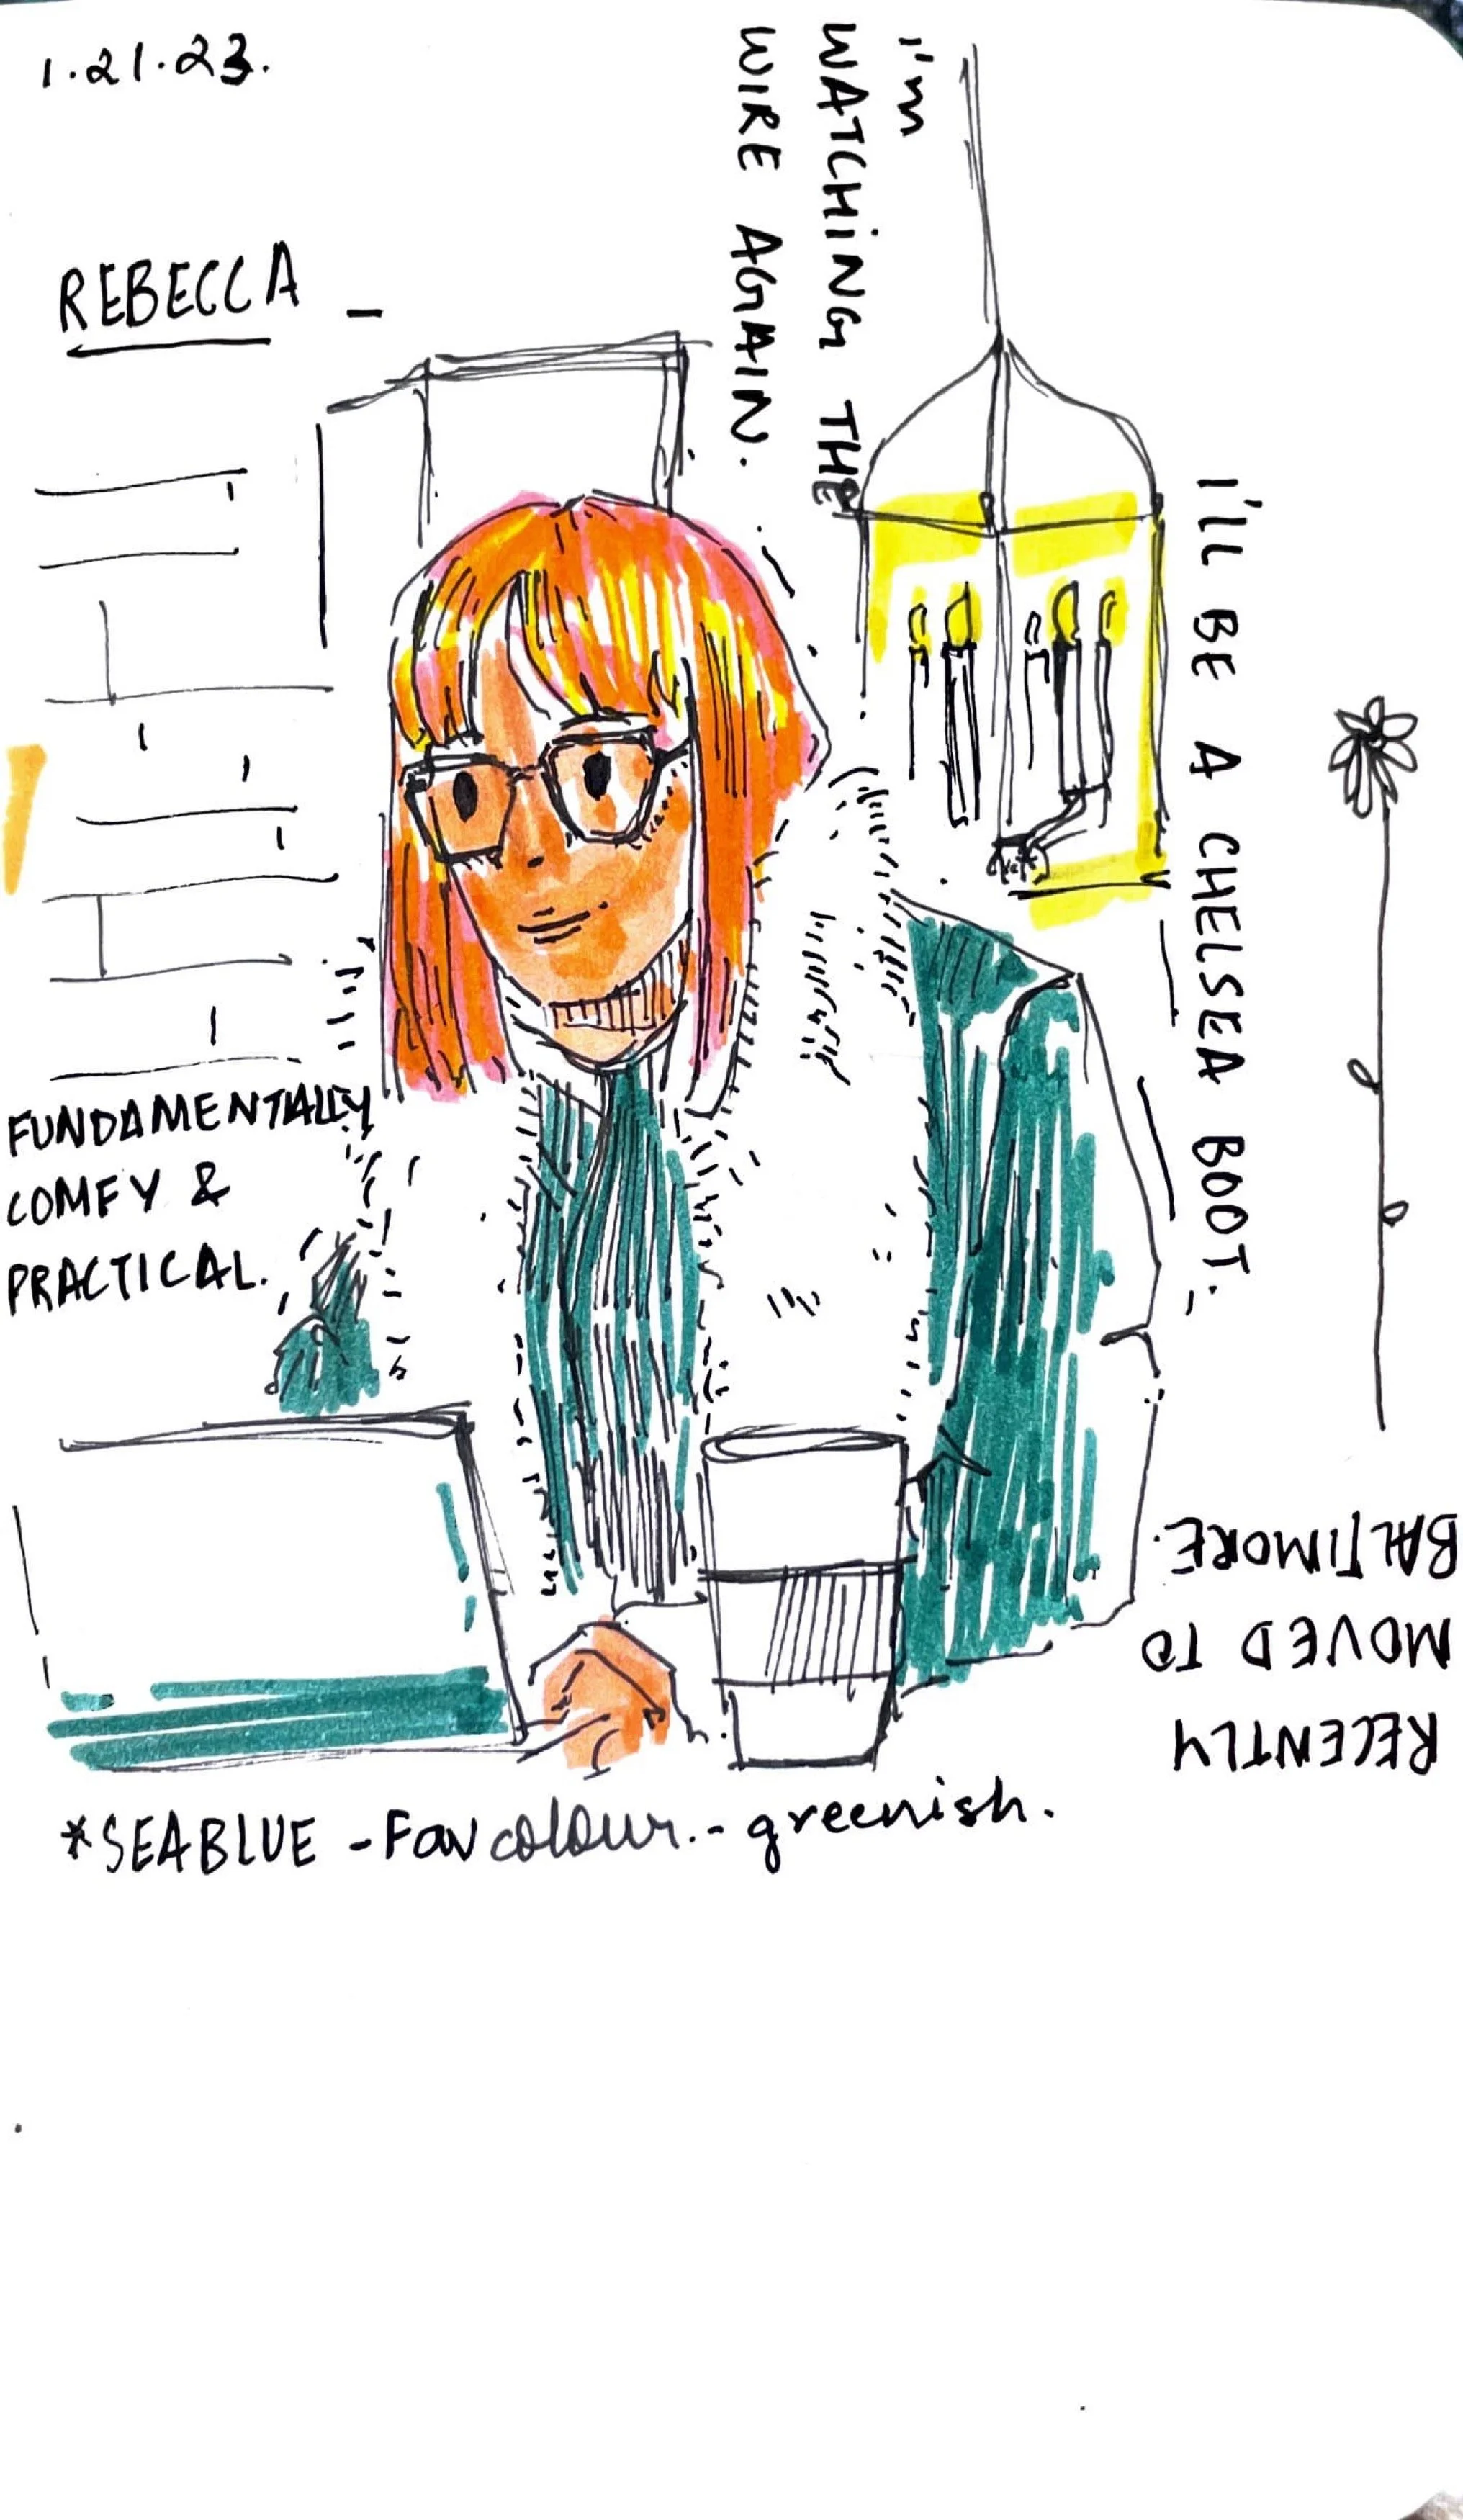 1.21.23.
REBECCA -
I'm
WATCHING THE
WIRE AGAIN.
I'LL BE A CHELSEA BOOT.
FUNDAMENTALLY
COMFY &
PRACTICAL.
RECENTLY
MOVED TO
BALTIMORE.
*SEABLUE - Fav colour. - greenish.